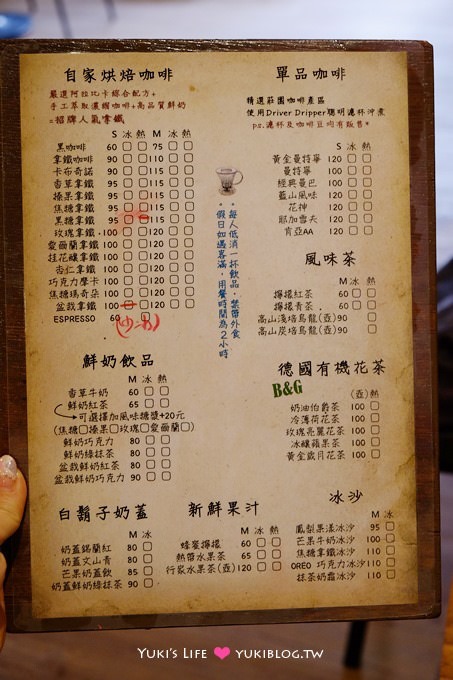 自家烘焙咖啡
嚴選阿拉比卡綜合配方+
手工萃取濃縮咖啡+高品質鮮奶
=招牌人氣拿鐵
S 冰 熱 M 冰 熱
黑咖啡 60 75
拿鐵咖啡 90 110
卡布奇諾 90 110
香草拿鐵 95 115
榛果拿鐵 95 115
焦糖拿鐵 95 115
黑糖拿鐵 95 115
玫瑰拿鐵 100 120
愛爾蘭拿鐵 100 120
桂花釀拿鐵 100 120
杏仁拿鐵 100 120
巧克力摩卡 100 120
焦糖瑪奇朵 100 120
盆栽拿鐵 100 120
ESPRESSO 60
單品咖啡
精選莊園咖啡產區
使用Driver Dripper聰明濾杯沖煮
p.s.濾杯及咖啡豆均有販售*
S 冰 熱
黃金曼特寧 120
曼特寧 100
經典曼巴 120
藍山風味 120
花神 120
耶加雪夫 120
肯亞AA 120
*每人低消一杯飲品,禁帶外食
*假日如遇客滿,用餐時間為2小時
風味茶
M 冰 熱
檸檬紅茶 60
檸檬青茶 60
高山淺焙烏龍(壺) 90
高山炭焙烏龍(壺) 90
鮮奶飲品
M 冰 熱
香草牛奶 60
鮮奶紅茶 65
可選擇加風味糖漿+20元
(焦糖 榛果 玫瑰 愛爾蘭)
鮮奶巧克力 80
鮮奶綠抹茶 80
盆栽鮮奶紅茶 80
盆栽鮮奶巧克力 90
德國有機花茶
B&G
(壺)熱
奶油伯爵茶 100
冷薄荷花茶 100
玫瑰亮麗花茶 100
冰釀蘋果茶 100
黃金歲月花茶 100
白鬍子奶蓋
M 冰
奶蓋錫蘭紅 80
奶蓋文山青 80
芒果奶蓋飲 85
奶蓋鮮奶綠抹茶 90
新鮮果汁
M 冰 熱
蜂蜜檸檬 60
熱帶水果茶 65
行家水果茶(壺) 120
冰沙
M 冰
鳳梨果漾冰沙 95
芒果牛奶冰沙 100
焦糖拿鐵冰沙 110
OREO 巧克力冰沙 110
抹茶奶霜冰沙 110
YUKI'S LIFE ♥ YUKIBLOG.TW